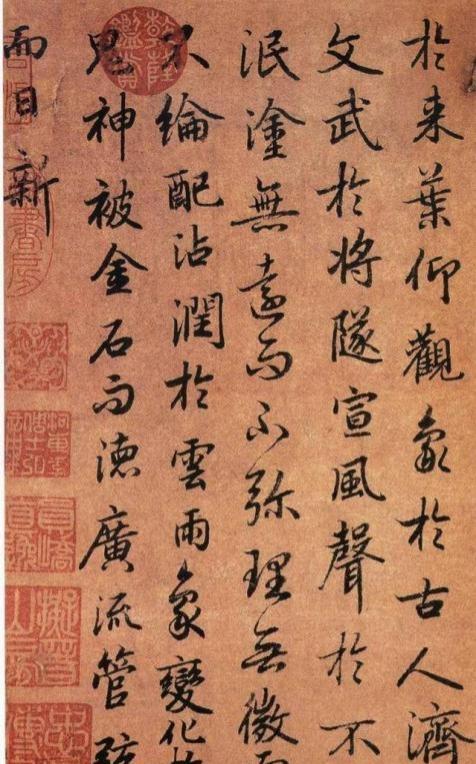 於来葉仰觀象於古人濟
文武於將隧宣風聲於不
泯塗無遠而不弥理無微而
不綸配沾潤於雲雨象變化
鬼神被金石而德廣流管
而日新